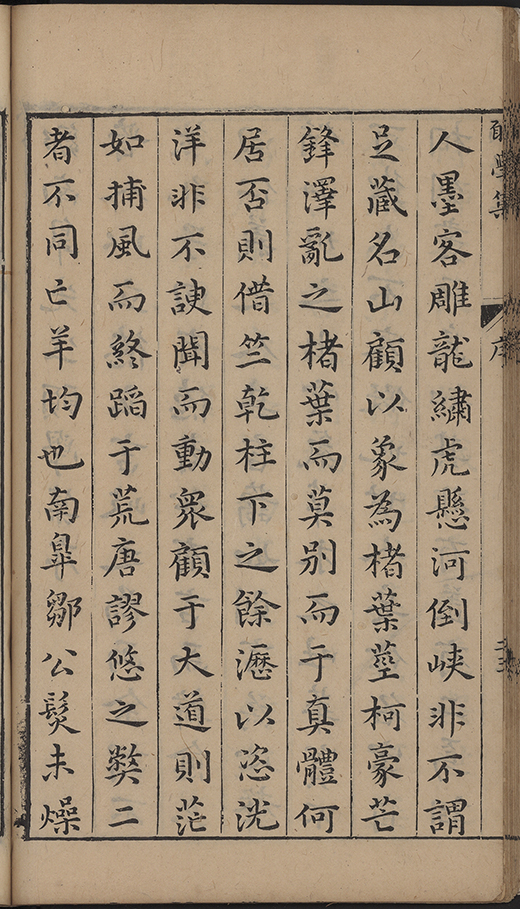 人墨客雕龍繡虎懸河倒峽非不謂
足藏名山顧以象為楮葉莖柯豪芒
鋒澤亂之楮葉而莫別而于真體何
居否則借竺乾柱下之餘瀝以恣洸
洋非不諛聞而動眾顧于大道則茫
如捕風而終蹈于荒唐謬悠之獘二
者不同亡羊均也南臯鄒公髮未燥
學集
序